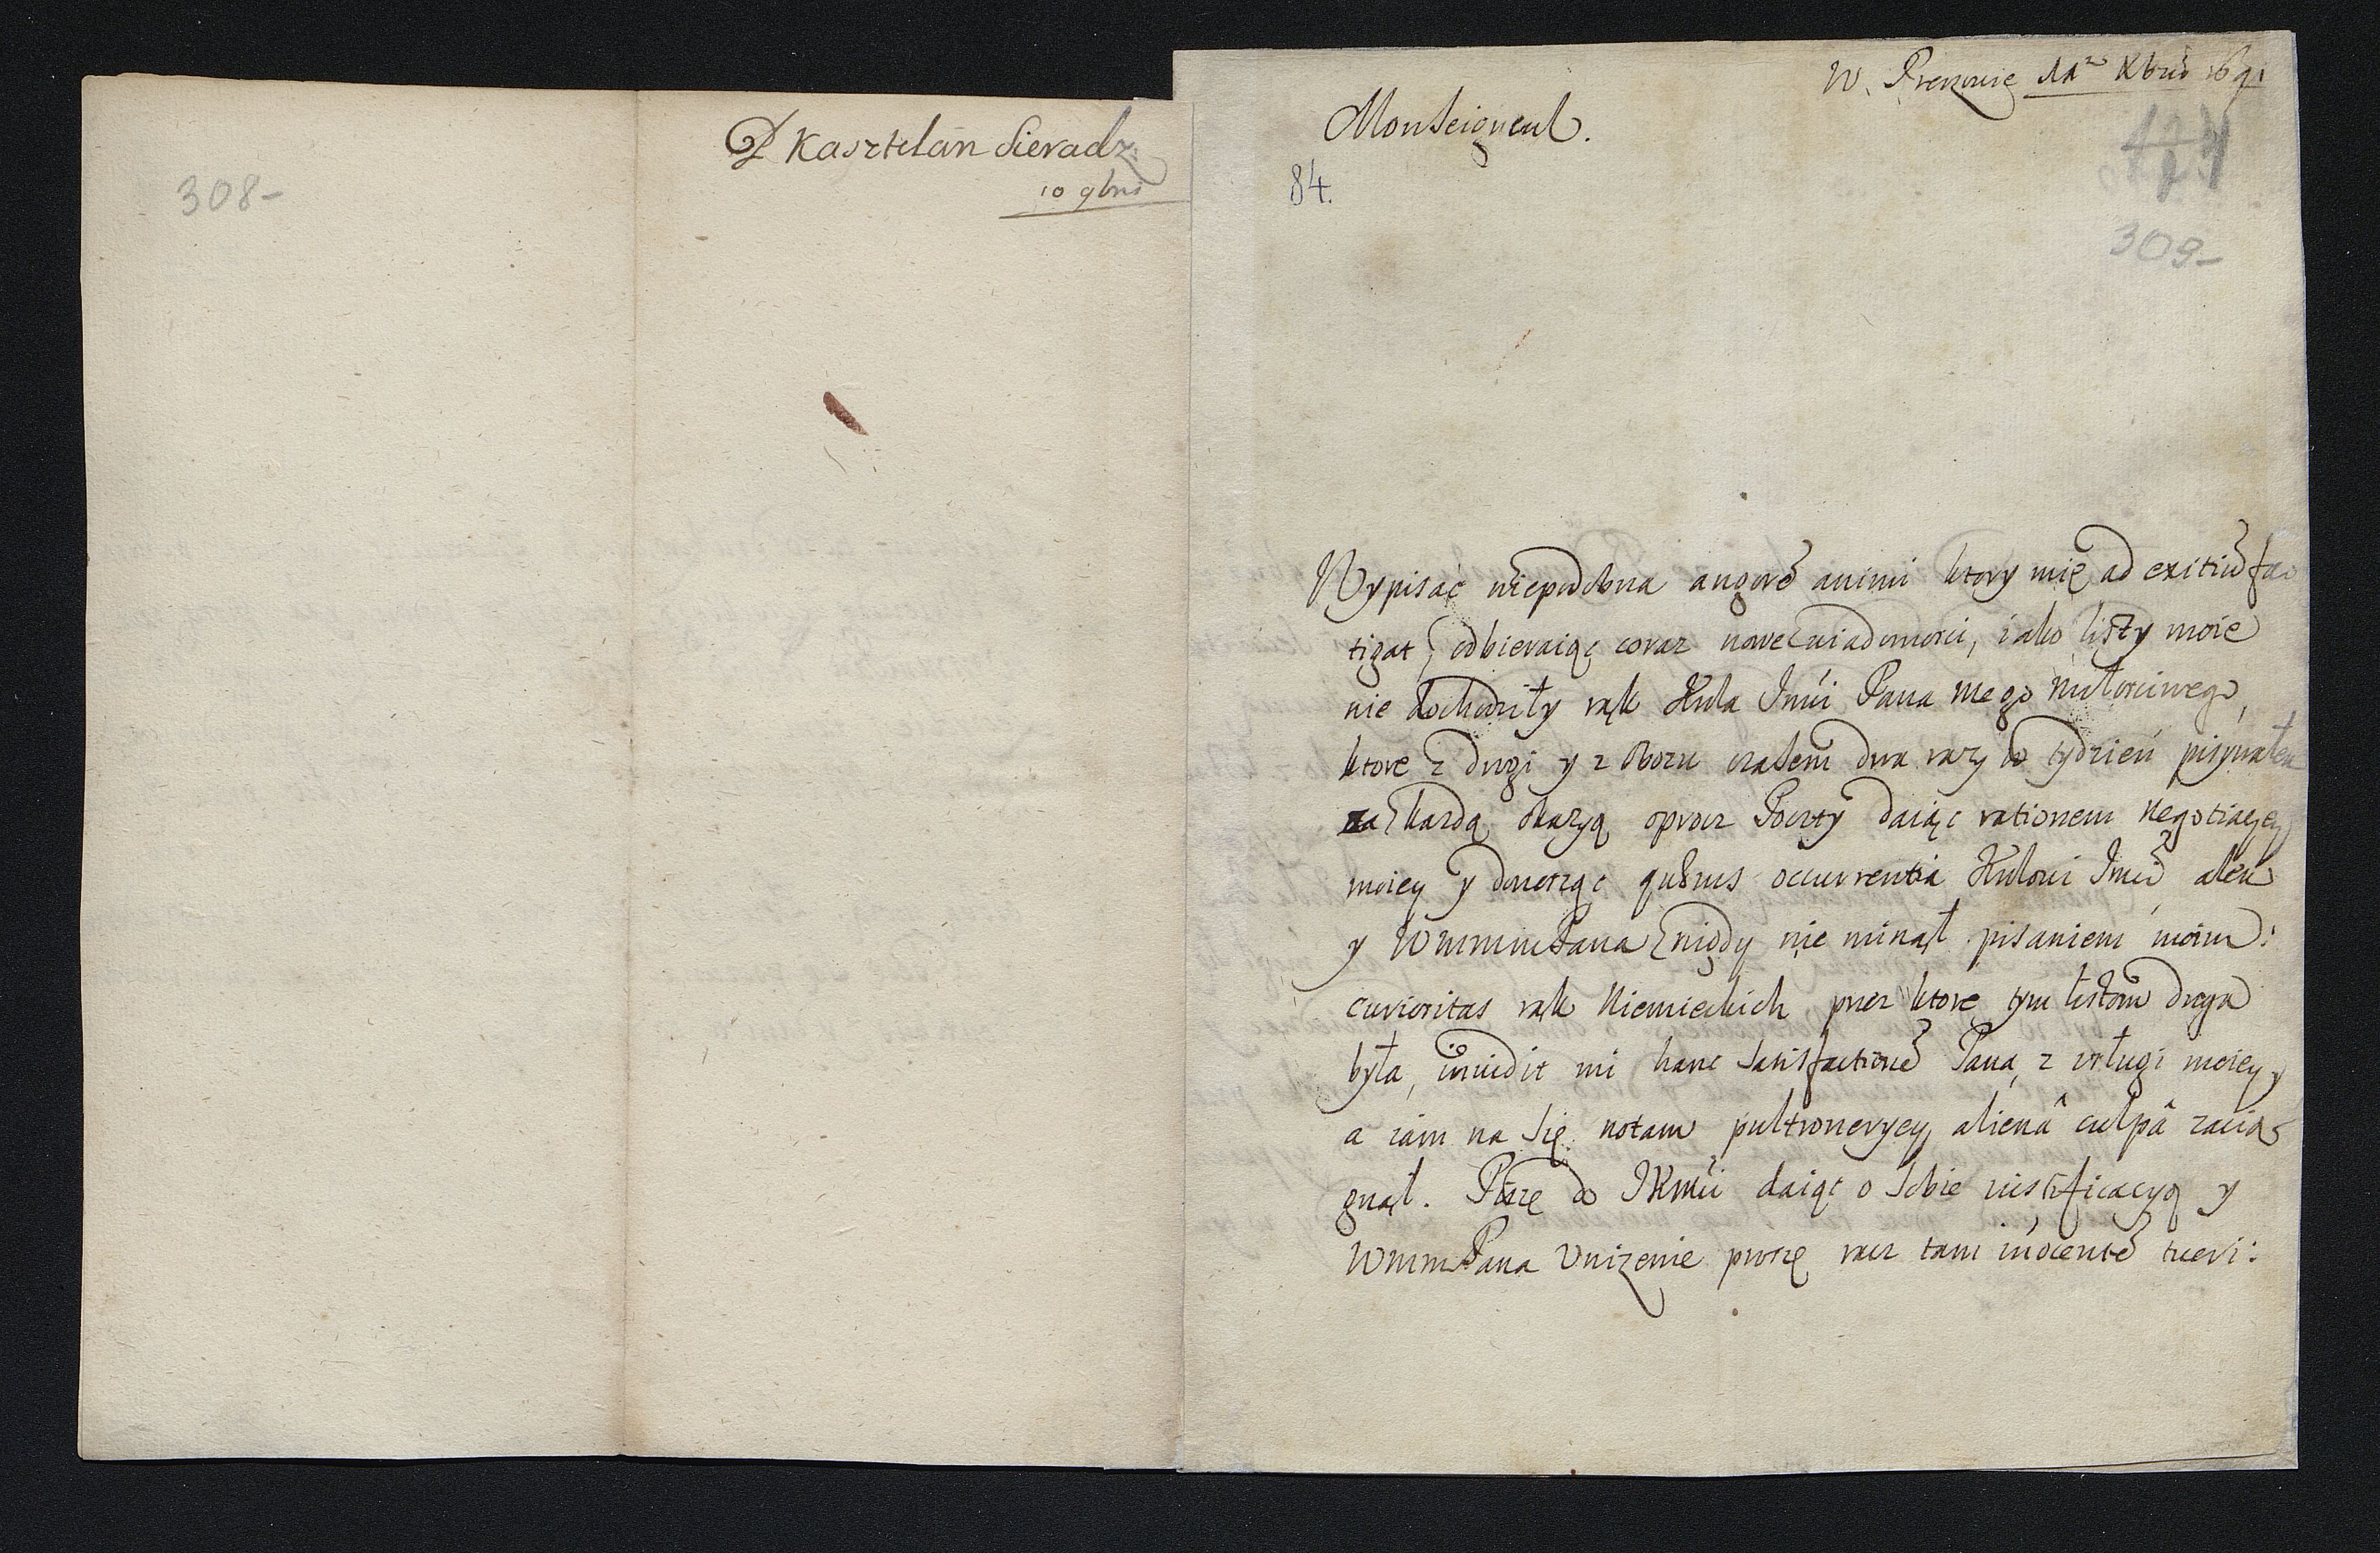 P Kasztelan Sieradz:
10 9bris
308-
W. Prezowie 1691
Monseigneur.
84.
309-
Wypisać niepodobna angorē animi ktory mię ad exitiū fa
tigat, odbieraiąc coraz nowe wiadomosci, iako listy moie
nie dochodziły rąk Krola Jmći Pana mego miłosciwego,
ktore z drogi y z Obozu czasem dwa razy w tydzień pisywałem
za każdą okazyą oprocz Poczty daiąc rationem negotiacyey
moiey y donosząc occurrentia Krolowi Jmći, alem
y WMMMPana nigdy nie minął pisaniem moim:
curiositas rąk Niemieckich przez ktore tym listom droga
była, invidit mi hanc satisfactionē Pana, z usługi moiey,
a iam na się notam pultroneryey alienâ culpâ zacią
gnął. Piszę do JKMći daiąc o sobie iustificacyą y
WMMPana Unizenie proszę racz tam inocentē tueri: